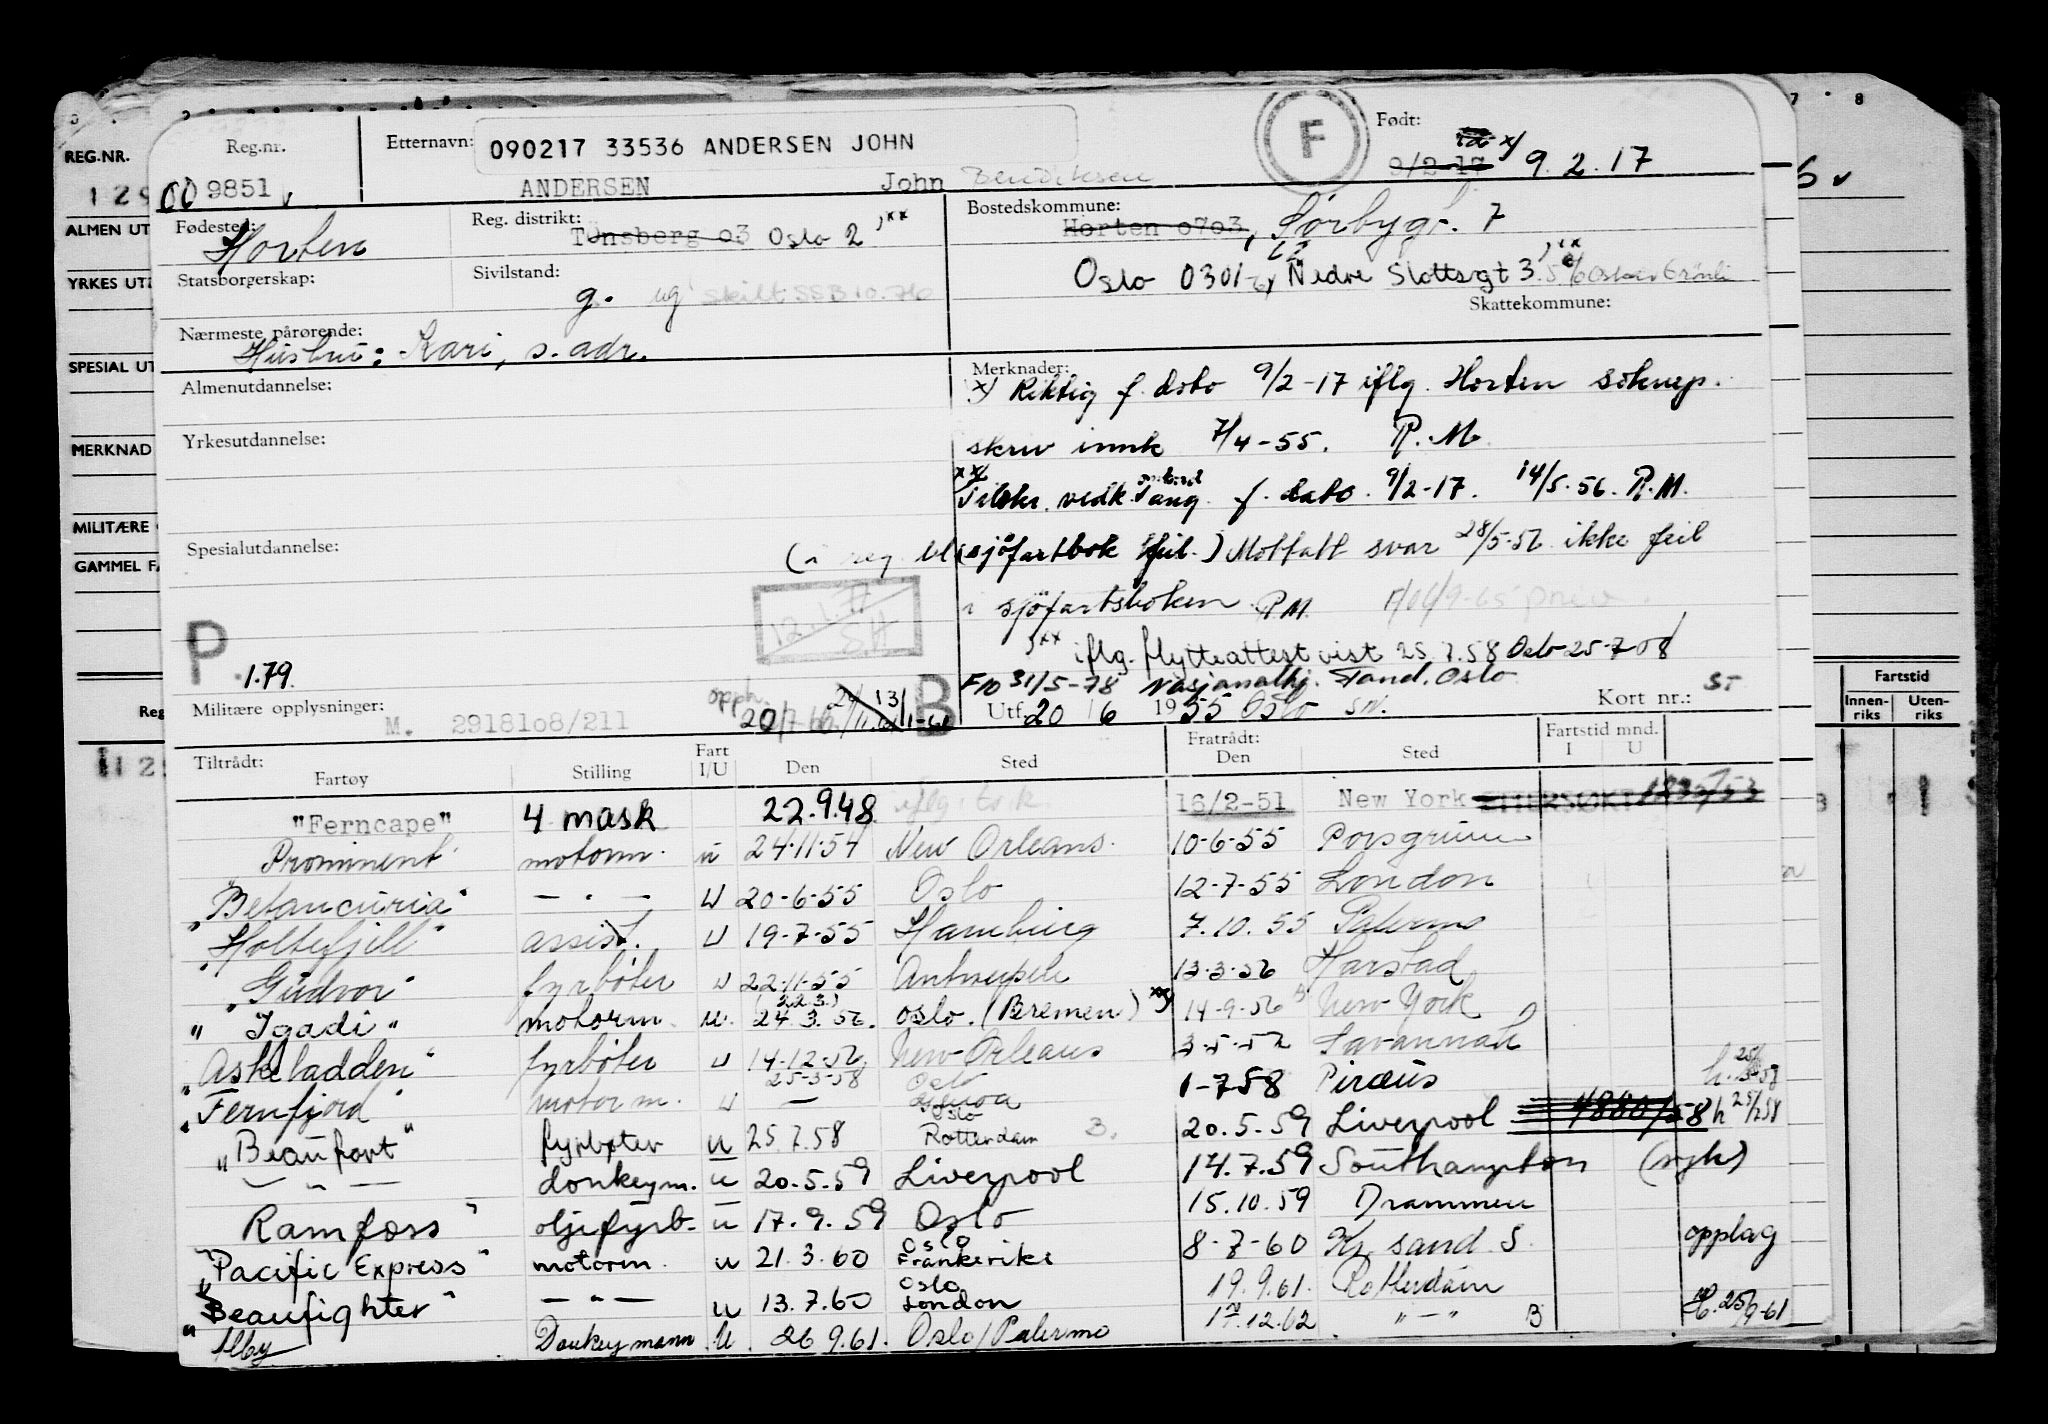 REG.NR.
Reg.nr.
Etternavn:
090217 33536 ANDERSEN JOHN
F
Født:
9/2-17 x/ 9.2.17
7 8
009851
ANDERSEN
John Bendiksen
Fødested:
Horten
Reg. distrikt:
Tønsberg 03 Oslo 2
Bostedskommune:
Horten 0703, Sørbygt. 7
ALMEN UT
Statsborgerskap:
Sivilstand:
g. ug skilt
Oslo 0301 Nedre Slottsgt 3
YRKES UT
Skattekommune:
Nærmeste pårørende:
Hustru: Kari, s. adr.
SPESIAL UT
Almenutdannelse:
Merknader:
x) Riktig f. dato 9/2-17 iflg. Horten
Yrkesutdannelse:
skriv innk 7/4-55. R.M.
MERKNAD
f. dato 9/2-17. 14/5.56. R.M.
MILITÆRE
Spesialutdannelse:
(i reg. sjøfartbok feil.) Mottatt svar 28/5-56 ikke feil
GAMMEL F
i sjöfartsboken R.M.
P
1.79.
iflg. flytteattest vist 25.7.58 Oslo 25-7-58
F10 31/5-78 Oslo
Militære opplysninger:
M. 2918108/211
opph.
B
Utf. 20 / 6 1955 Oslo
Kort nr.:
Fartstid
Innen-riks
Uten-riks
Tiltrådt:
Fartøy
Stilling
Fart I/U
Den
Sted
Fratrådt: Den
Sted
Fartstid mnd. I U
"Ferncape" 4 mask 22.9.48 16/2-51 New York
Prominent motorm. u 24-11-54 New Orleans. 10-6-55 Porsgrunn
"Betancuria" — " — U 20-6-55 Oslo 12-7-55 London
"Holtefjell" assist. U 19-7-55 Hamburg 7.10.55 Palermo
"Gudvor" fyrbøter U 22-11-55 Antwerpen 13-3-56 Harstad
"Igadi" motorm. u. (22.3.) 24.3.56. Oslo. (Bremen) 14-9-56 New York
"Askeladden" fyrbøter U 14-12-56 New Orleans Savannah
"Fernfjord" motorm. U 25-3-58 Oslo Genoa 1-7 58 Piræus
"Beaufort" fyrbøter u 25.7.58 Oslo Rotterdam 20.5.59 Liverpool
— " — donkeym. u 20.5.59 Liverpool 14.7.59 Southampton (syk)
Ramfoss" oljefyrb. u 17.9.59 Oslo 15.10.59 Drammen
"Pacific Express" motorm. u 21.3.60 Oslo Frankerike 8-7-60 Kr. sand. S. opplag
"Beaufighter" — " — u 13.7.60 Oslo London 19.9.61. Rotterdam
"Alby Donkeymann U. 26.9.61. Oslo/Palermo 17.12.62 " — " B